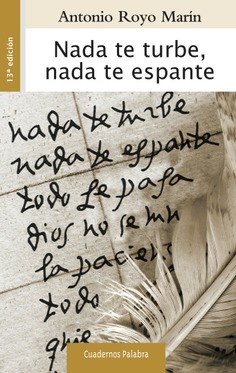 Antonio Royo Marín
Nada te turbe,
nada te espante
13ª edición
nada te turbe
nada te espante
todo se pasa
dios no se mu
la pacien
todo
quie
Cuadernos Palabra